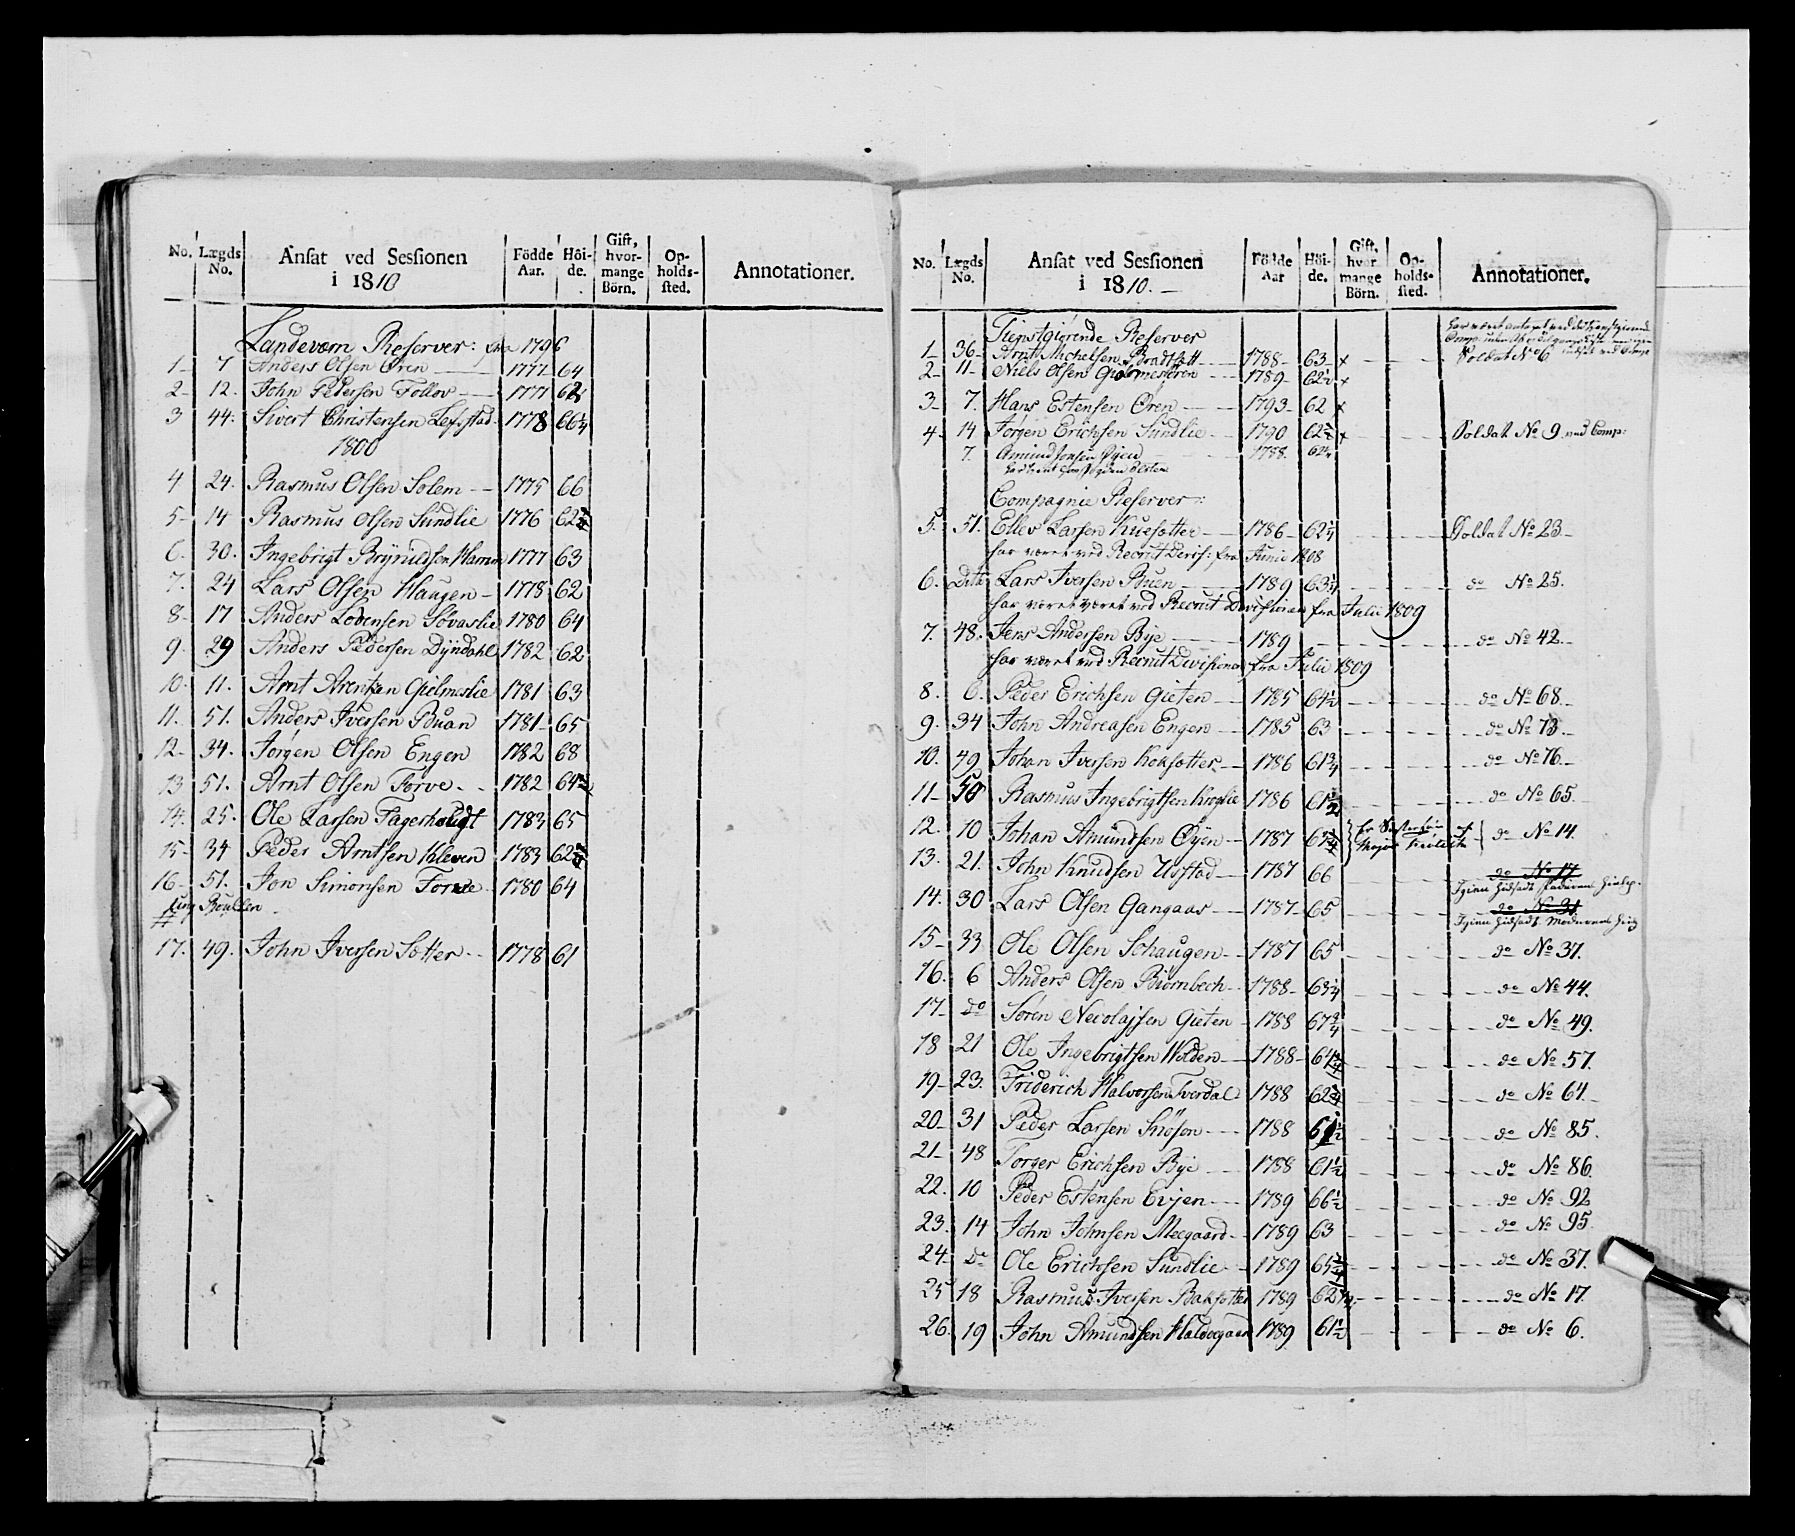 No. Lægds No. Ansat ved Sessionen i 1810 Födde Aar. Höi-de. Gift, hvor-mange Börn. Op-holds-sted. Annotationer.
Landeværn Reserver: fra 1796
1- 7 Anders Olsen Øren 1777 64
2- 12. John Pedersen Follov 1777 62
3 44. Sivert Christensen 1778 66 1/4
1800
4 24. Rasmus Olsen Solem 1775 66
5- 14 Rasmus Olsen Sundlie 1776 62 3/4
6. 30. Ingebrigt Brynildsen Hamm 1777 63
7. 24 Lars Olsen Haugen 1778 62
8- 17 Anders Lodensen Løvaslie 1780 64
9. 29 Anders Pedersen Dÿndahl 1782 62
10. 11. Arnt Arentsen Gielmeslie 1781 63
11. 51. Anders Iversen Buan 1781 65
12- 34. Jørgen Olsen Engen 1782 68
13 51. Arnt Olsen Forve 1782 64
14. 25. Ole Larsen Fagerhougt 1783 65
15- 34 Peder Arntsen Kleven 1783 62
16- 51. Jon Simonsen Forve 1780 64
Rullen
17. 49. John Iversen Sotter 1778 61
No. Lægds No. Ansat ved Sessionen i 1810. Födde Aar Höi-de. Gift, hvor mange Börn. Op-holds-sted. Annotationer.
Tienstgiørende Reserver
1- 36- Arnt Michelsen Bradstött 1788- 63 x Soldat No 6
2- 11- Niels Olsen Gielmesøren 1789- 62 1/2 x
3- 7. Hans Estensen Øren 1793- 62 x
4- 14 Jørgen Erichsen Sundlie 1790 62 x Soldat No 9 ved Comp:
7. Amund Jonsen Øyen 1788. 62
Compagnie Reserver:
5. 51. Ellev Larsen Kuesotter 1786- 62 1/4 Soldat No 23
har været ved Recrut Divis: fra Junii 1808
6. Dito Lars Iversen Buen 1789 63 1/4 do No 25.
har været været ved Recrut Divisionen fra Julii 1809
7. 48. Jens Andersen Bye 1789 do No 42
har været ved Recrut Divisionen fra Julii 1809
8. 6. Peder Erichsen Gieten 1785 64 1/2 do No 68
9. 34 John Andreasen Engen 1785 63 do No 73
10. 49 Johan Iversen Koksotter 1786 61 3/4 do No 76
11- 50 Rasmus Ingebrigtsen Kroglie 1786 61 1/2 do No 65.
12. 10 Johan Amundsen Øyen 1787 do No 14.
13. 21. John Knudsen Ustad 1787 66 do No 17
14. 30 Lars Olsen Gangaas 1787- 65 do No 31
15- 33 Ole Olsen Schaugen 1787 65 do No 37.
16. 6 Anders Olsen Biörnbech 1788- 63 1/4 do No 44.
17- do Søren Necolajsen Gieten 1788 67 3/4 do No 49.
18 21 Ole Ingebrigtsen Wolden 1788- 64 do No 57.
19- 23. Friderich Halvorsen Tverdal 1788 62 3/4 do No 64.
20- 31 Peder Larsen Snöson 1788 61 1/2 do No 85.
21- 48 Torger Erichsen Bye 1788 61 1/2 do No 86.
22. 10 Peder Estensen Evjen 1789 66 1/2 do No 92
23. 14 John Johnsen Meegaard 1789 63 do No 95
24- do Ole Erichsen Sundlie 1789 65 do No 37.
25 18 Rasmus Iversen Baksotter 1789 62 do No 17.
26. 19 John Amundsen Haldoegaard 1789 61 1/2 do No 6.